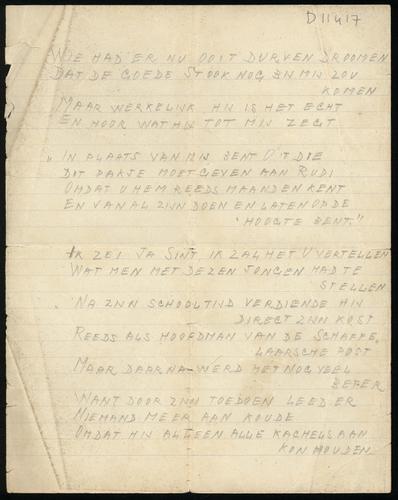 D11417
WIE HAD ER NU OOIT DURVEN DROOMEN
DAT DE GOEDE ST OOK NOG BIJ MIJ ZOU
KOMEN
MAAR WERKELIJK HIJ IS HET ECHT
EN HOOR WAT HIJ TOT MIJ ZEGT
"IN PLAATS VAN MIJ BENT U 'T DIE
DIT PAKJE MOET GEVEN AAN RUDI
OMDAT U HEM REEDS MAANDEN KENT
EN VAN AL ZIJN DOEN EN LATEN OP DE
HOOGTE BENT."
IK ZEI JA SINT, IK ZAL HET U VERTELLEN
WAT MEN MET DEZEN JONGEN HAD TE
STELLEN
NA ZIJN SCHOOLTIJD VERDIENDE HIJ
DIRECT ZIJN KOST
REEDS ALS HOOFDMAN VAN DE SCHAFFE,
LAARSCHE POST
MAAR DAARNA WERD HET NOG VEEL
BETER
WANT DOOR ZIJN TOEDOEN LEED ER
NIEMAND MEER AAN KOUDE
OMDAT HIJ ALLEEN ALLE KACHELS AAN
KON HOUDEN